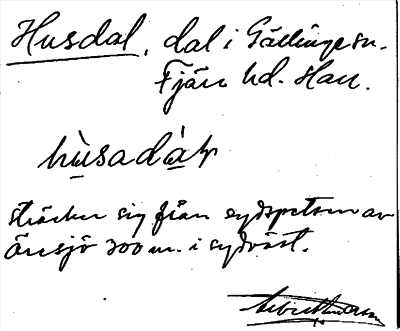 Husdal, dal i Gällinge sn.
Fjäre hd. Hall.
sträcker sig från sydspetsen av
Äresjö 300 m. i sydväst.